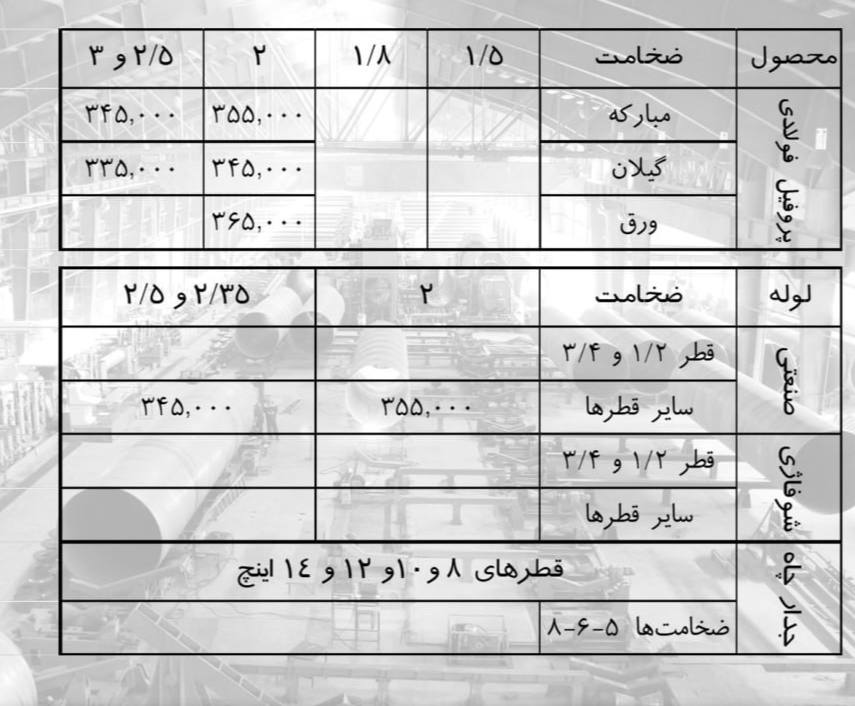 محصول ضخامت ۱/۵ ۱/۸ ۲ ۲/۵ و ۳
پروفیل فولادی
مبارکه ۳۵۵,۰۰۰ ۳۴۵,۰۰۰
گیلان ۳۴۵,۰۰۰ ۳۳۵,۰۰۰
ورق ۳۶۵,۰۰۰
لوله ضخامت ۲ ۲/۳۵ و ۲/۵
صنعتی
قطر ۱/۲ و ۳/۴
سایر قطرها ۳۵۵,۰۰۰ ۳۴۵,۰۰۰
شوفاژی
قطر ۱/۲ و ۳/۴
سایر قطرها
جدار چاه
قطرهای ۸ و ۱۰و ۱۲ و ١٤ اینچ
ضخامت‌ها ۵-۶-۸